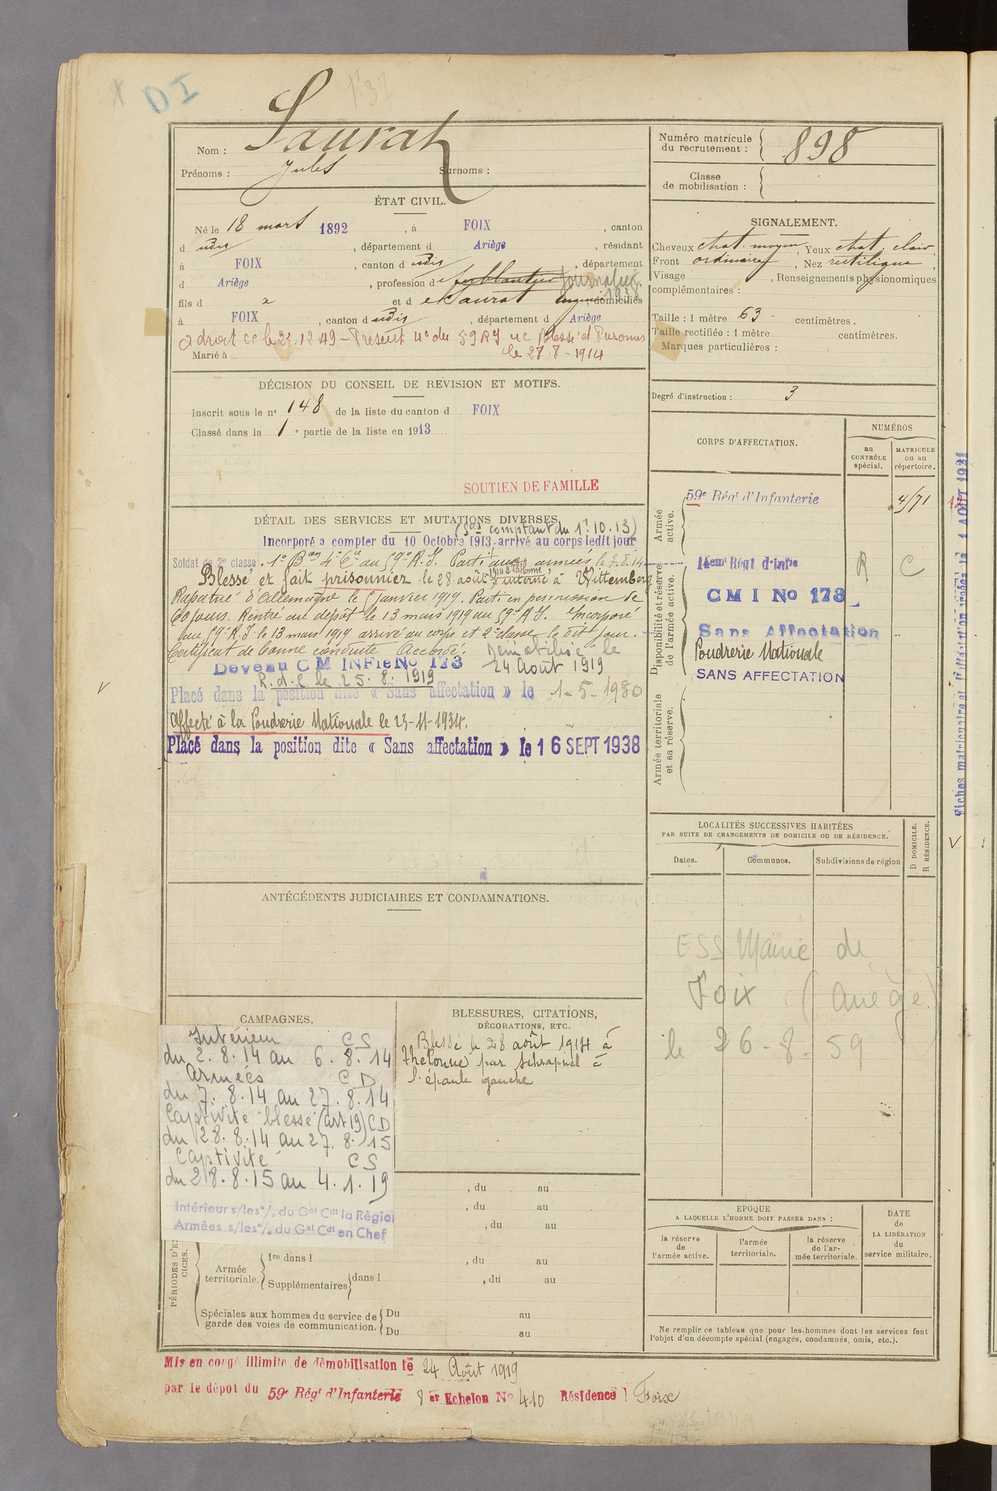 DI
Nom : Saurat
Prénoms : Jules Surnoms :
Numéro matricule du recrutement : 898
Classe de mobilisation :
ÉTAT CIVIL.
Né le 18 mars 1892, à FOIX, canton
d udis, département d Ariège, résidant
à FOIX, canton d udis, département
d Ariège, profession d ferblantier Journalier 1938
fils d x et d Saurat domiciliés
à FOIX, canton d udis, département d Ariège
a droit CC le 23.12.49 - Présent 4e du 59 RI Blessé et Prisonnier
le 28-8-1914
Marié à
SIGNALEMENT.
Cheveux chat. moyen, Yeux chat. clair
Front ordinaire, Nez rectiligne
Visage , Renseignements physionomiques
complémentaires :
Taille : 1 mètre 63 centimètres.
Taille rectifiée : 1 mètre centimètres.
Marques particulières :
Degré d'instruction : 3
DÉCISION DU CONSEIL DE REVISION ET MOTIFS.
Inscrit sous le no 148 de la liste du canton d FOIX
Classé dans la 1e partie de la liste en 1913
SOUTIEN DE FAMILLE
DÉTAIL DES SERVICES ET MUTATIONS DIVERSES.
(Sces comptant du 1er.10.13)
Incorporé a compter du 10 Octobre 1913 arrivé au corps ledit jour
Soldat de 2e classe. 1er Bon 4e Cie au 59e R.I. Parti aux armées le 7.8.14
Blessé et fait prisonnier le 28 août 1914 à Thelonne interné à Wittemberg
Rapatrié d'Allemagne le 5 janvier 1919. Parti en permission de
60 jours. Rentré au dépôt le 13 mars 1919 au 59e R.I. Incorporé
au 59e R.I. le 13 mars 1919 arrivé au corps et 2e classe le dit jour.
Certificat de bonne conduite Accordé. Démobilisé le
Dévenu C M INFIE No 173 24 Août 1919
R.d.C le 25.8.1919
Placé dans la position dite « Sans affectation » le 1-5-1930
Affecté à la Poudrerie Nationale le 23-11-1934.
Placé dans la position dite « Sans affectation » le 16 SEPT 1938
CORPS D'AFFECTATION.
NUMÉROS
au CONTRÔLE spécial.
MATRICULE ou au répertoire.
Armée active.
59e Régt d'Infanterie
Disponibilité et réserve de l'armée active.
14eme Régt d'Infie R C
CMI No 173
Sans Affectation
Poudrerie Nationale
SANS AFFECTATION
Armée territoriale et sa réserve.
LOCALITÉS SUCCESSIVES HABITÉES
PAR SUITE DE CHANGEMENTS DE DOMICILE OU DE RÉSIDENCE.
D DOMICILE.
R RÉSIDENCE.
Dates. Communes. Subdivisions de région
ESS Mairie de
Foix (Ariège)
le 26-8-59
ANTÉCÉDENTS JUDICIAIRES ET CONDAMNATIONS.
CAMPAGNES.
Intérieur CS
du 2.8.14 au 6.8.14
Armées CD
du 7.8.14 au 27.8.14
Captivité blessé (art 19) CD
du 28.8.14 au 27.8.15
Captivité CS
du 28.8.15 au 4.1.19
Intérieur s/les o/. du Gal Cdt la Région
Armées s/les o/. du Gal Cdt en Chef
BLESSURES, CITATIONS,
DÉCORATIONS, ETC.
Blessé le 28 août 1914 à
Thelonne par schrapnel à
l'épaule gauche
, du au
, du au
, du au
PÉRIODES D'EX
CICES.
Armée territoriale.
1re dans l , du au
Supplémentaires dans l , du au
Spéciales aux hommes du service de garde des voies de communication.
Du au
Du au
EPOQUE
A LAQUELLE L'HOMME DOIT PASSER DANS :
la réserve de l'armée active.
l'armée territoriale.
la réserve de l'armée territoriale.
DATE de LA LIBÉRATION du service militaire.
Ne remplir ce tableau que pour les hommes dont les services font
l'objet d'un décompte spécial (engagés, condamnés, omis, etc.).
Mis en congé illimité de démobilisation le 24 Août 1919
par le dépot du 59e Régt d'Infanterie 8 er Echelon No 410 Résidence Foix